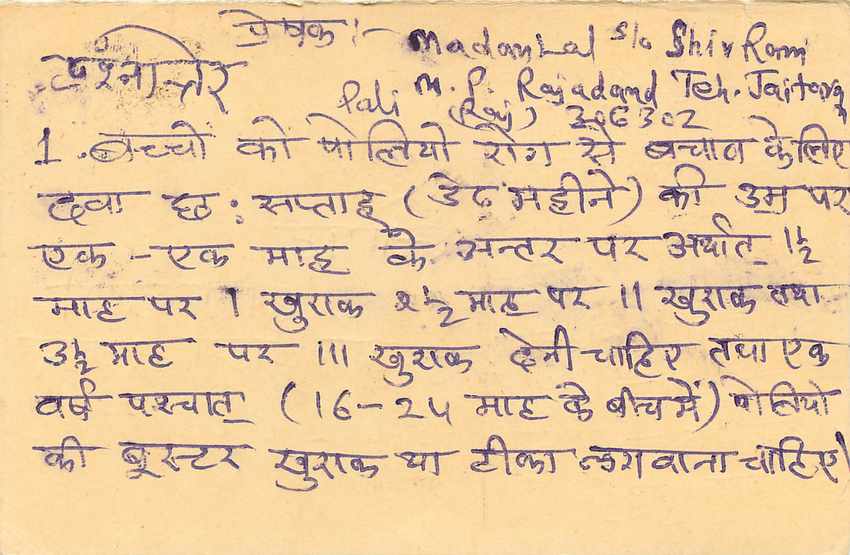 प्रेषक :- Madanlal S/o Shiv Ram
प्रश्नोत्तर
M. P. Rajadand Teh. Jaitaran
Pali (Raj) 306302
1. बच्चों को पोलियो रोग से बचाव के लिए
दवा छ: सप्ताह (डेढ महीने) की उम्र पर
एक - एक माह के अन्तर पर अर्थात् 1½
माह पर I खुराक 2½ माह पर II खुराक तथा
3½ माह पर III खुराक देनी चाहिए तथा एक
वर्ष पश्चात् (16-24 माह के बीच में) पोलियो
की बूस्टर खुराक या टीका लगवाना चाहिए